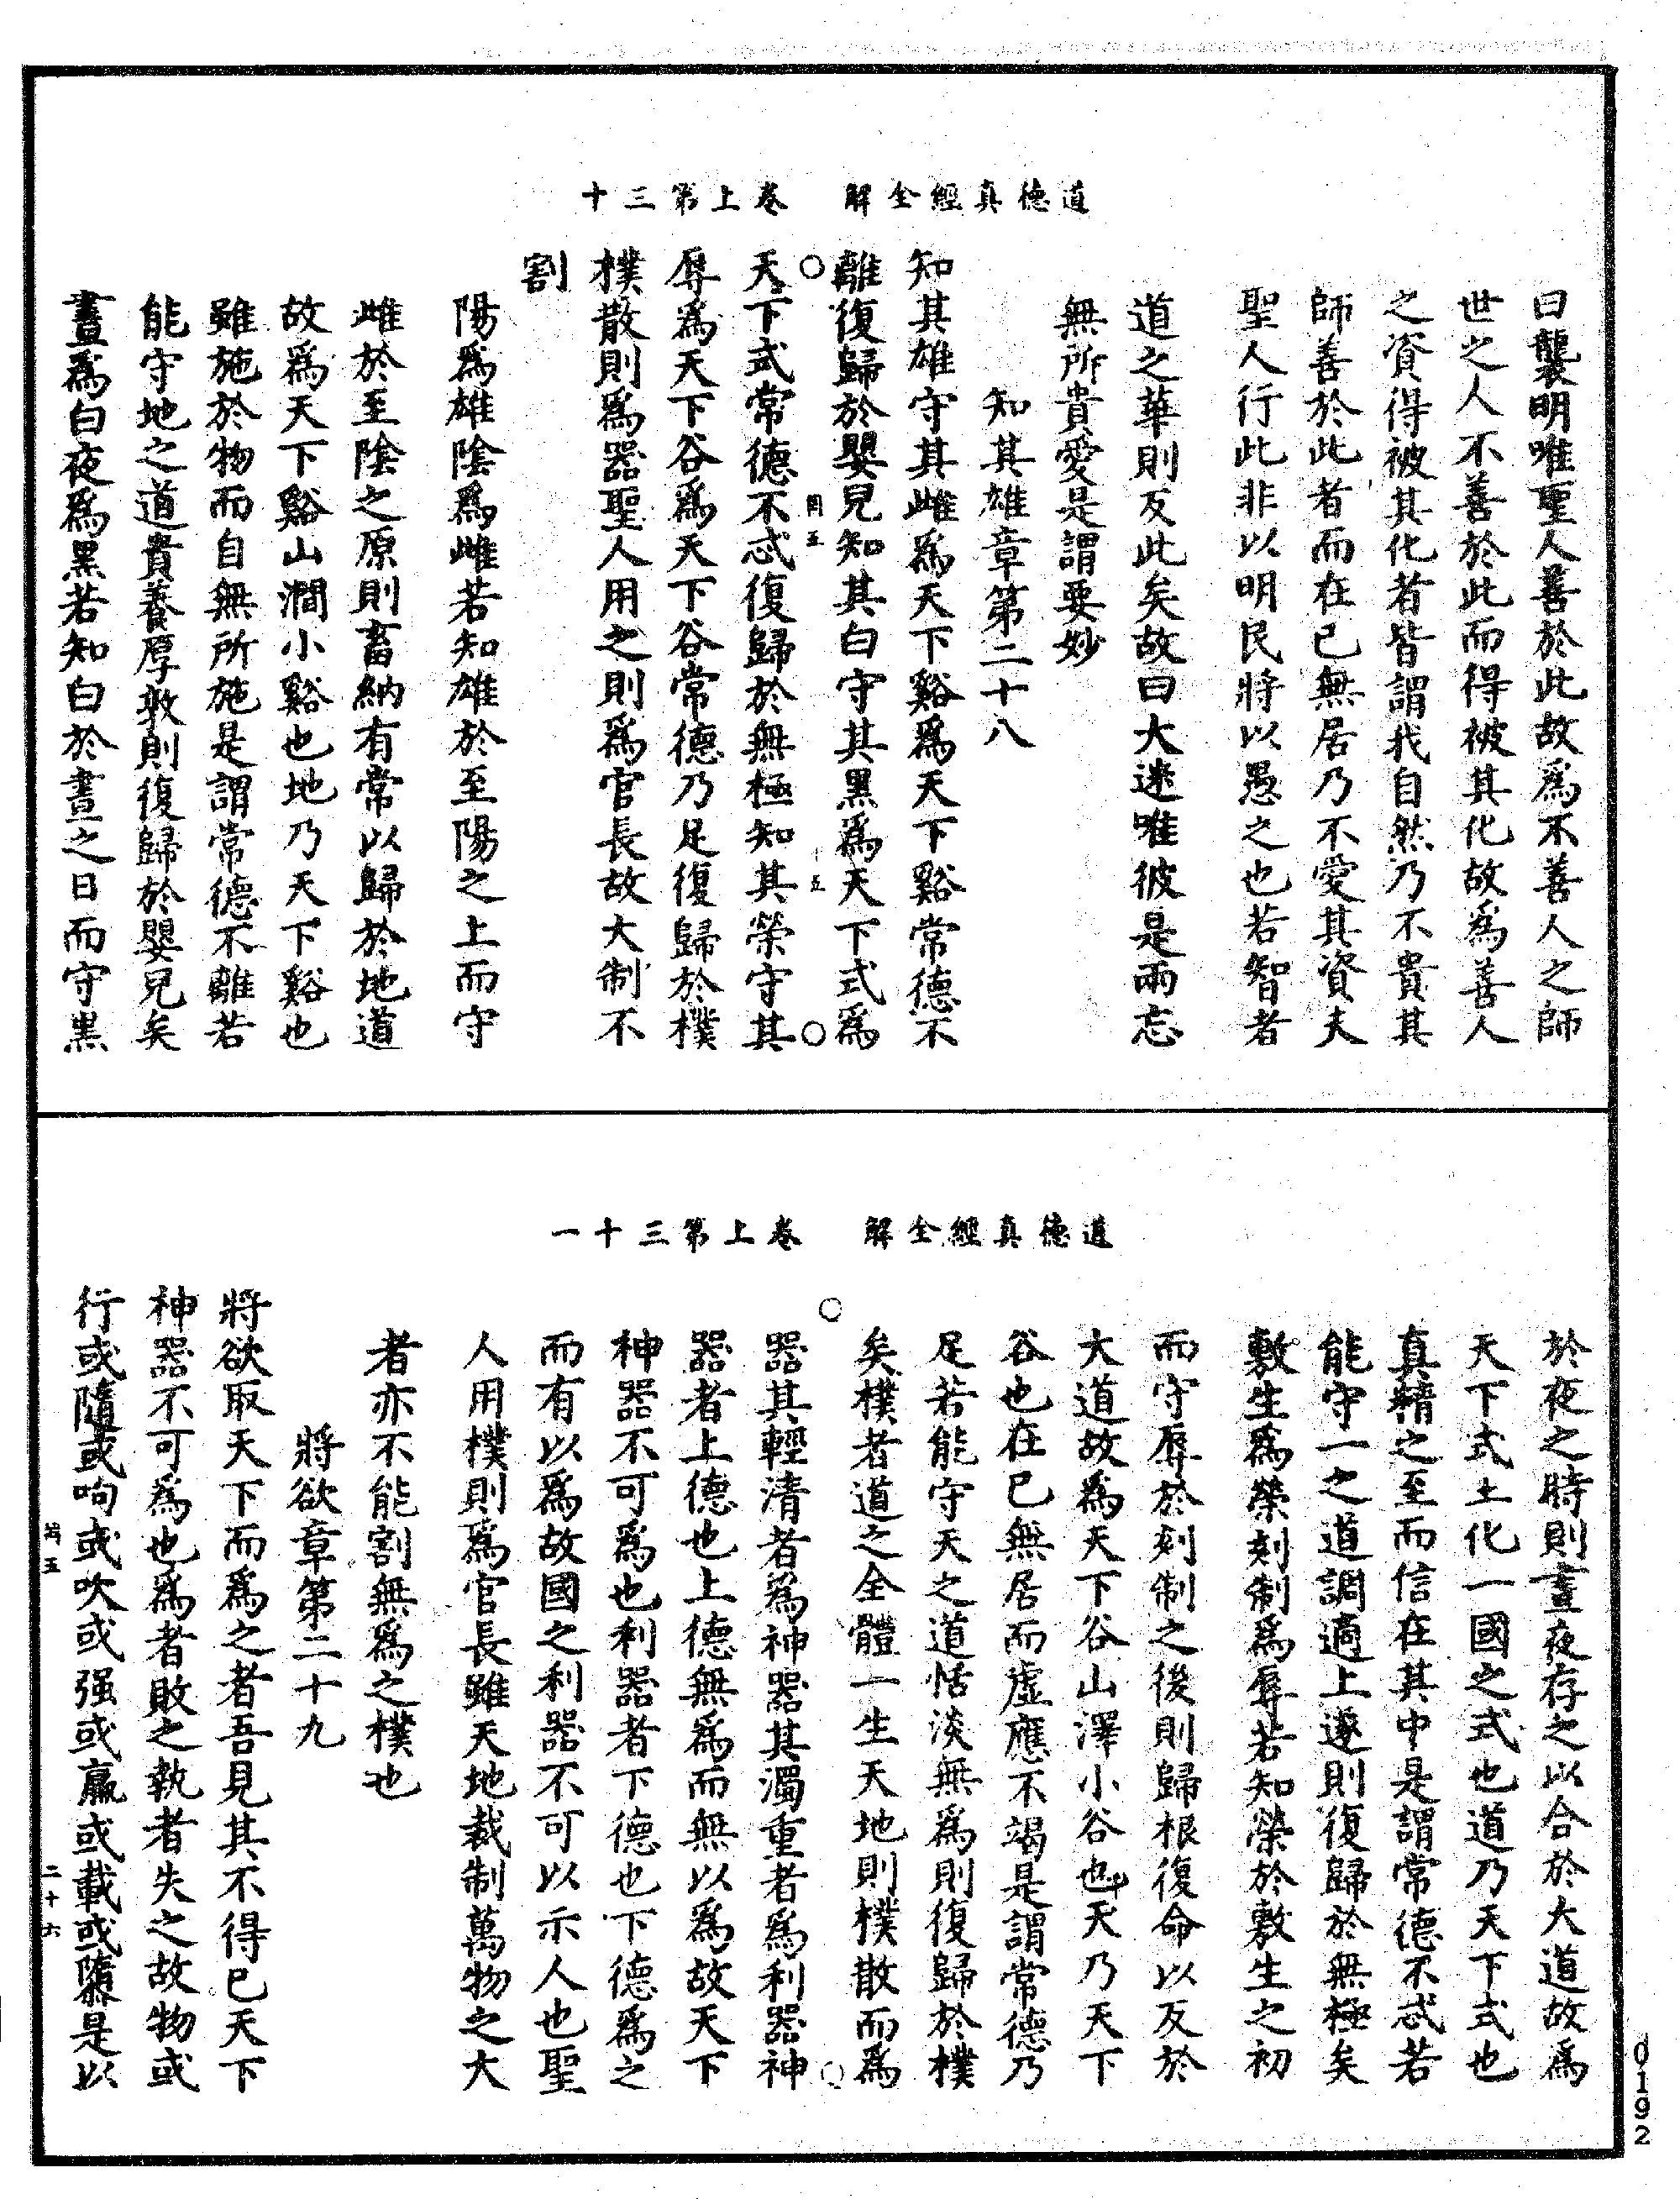 道德真經全解　卷上第三十
曰襲明唯聖人善於此故為不善人之師
世之人不善於此而得被其化故為善人
之資得被其化者皆謂我自然乃不貴其
師善於此者而在已無居乃不愛其資夫
聖人行此非以明民將以愚之也若智者
道之華則反此矣故曰大迷唯彼是兩忘
無所貴愛是謂要妙
知其雄章第二十八
知其雄守其雌為天下谿為天下谿常德不
離復歸於嬰兒知其白守其黑為天下式為
天下式常德不忒復歸於無極知其榮守其
辱為天下谷為天下谷常德乃足復歸於樸
樸散則為器聖人用之則為官長故大制不
割
陽為雄陰為雌若知雄於至陽之上而守
雌於至陰之原則畜納有常以歸於地道
故為天下谿山澗小谿也地乃天下谿也
雖施於物而自無所施是謂常德不離若
能守地之道貴養厚敦則復歸於嬰兒矣
晝為白夜為黑若知白於晝之日而守黑
道德真經全解　卷上第三十一
於夜之時則晝夜存之以合於大道故為
天下式土化一國之式也道乃天下式也
真精之至而信在其中是謂常德不忒若
能守一之道調適上遂則復歸於無極矣
敷生為榮刻制為辱若知榮於敷生之初
而守辱於刻制之後則歸根復命以反於
大道故為天下谷山澤小谷也天乃天下
谷也在已無居而虛應不竭是謂常德乃
足若能守天之道恬淡無為則復歸於樸
矣樸者道之全體一生天地則樸散而為
器其輕清者為神器其濁重者為利器神
器者上德也上德無為而無以為故天下
神器不可為也利器者下德也下德為之
而有以為故國之利器不可以示人也聖
人用樸則為官長雖天地裁制萬物之大
者亦不能割無為之樸也
將欲章第二十九
將欲取天下而為之者吾見其不得已天下
神器不可為也為者敗之執者失之故物或
行或隨或呴或吹或强或羸或載或隳是以
二十六
0192